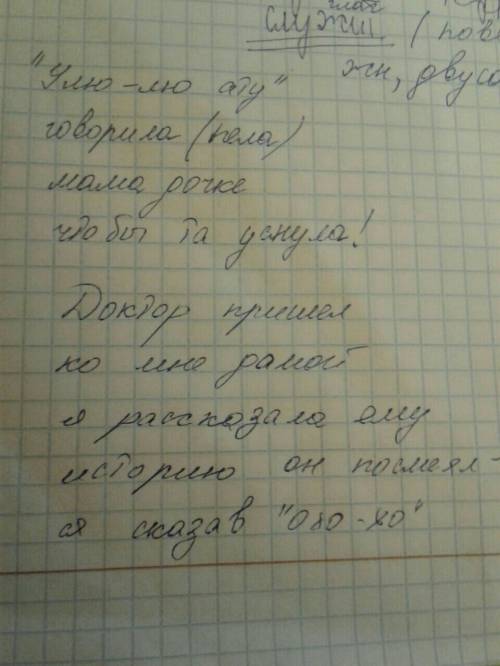 глаг
служи (пов
жи, двусо
"Улю-лю ату"
говорила (пела)
мама дочке
чтобы та уснула!
Доктор пришел
ко мне дамой
я рассказала ему
историю он посмеял-
ся сказав "Охо-хо"